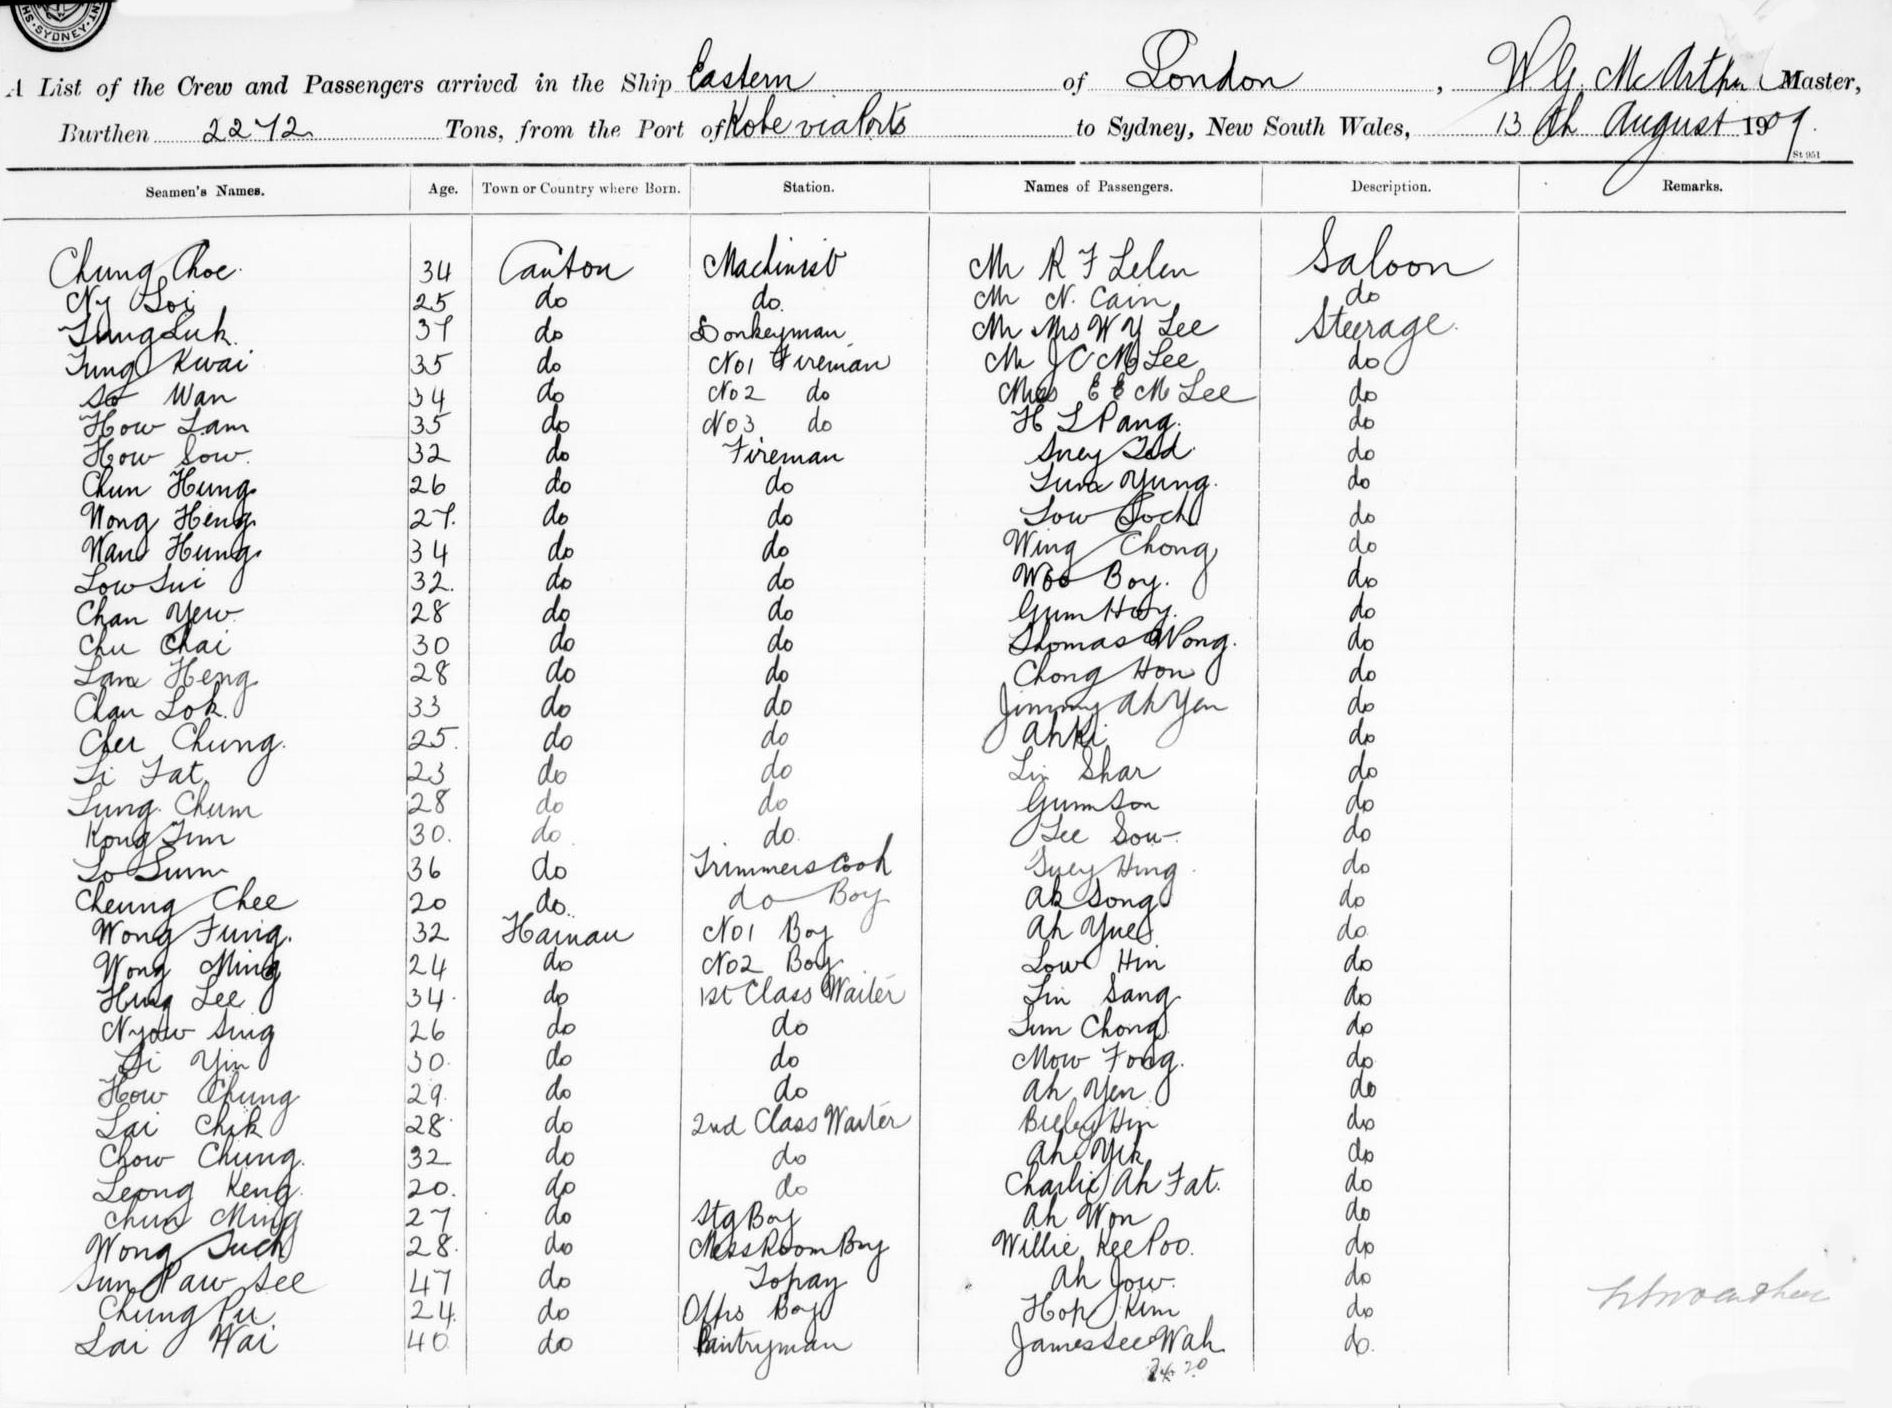 SYDNEY
A List of the Crew and Passengers arrived in the Ship Eastern of London, W. G. McArthur Master,
Burthen 2272 Tons, from the Port of Kobe via Ports to Sydney, New South Wales, 13th August 1909.
St 951
Seamen's Names. Age. Town or Country where Born. Station. Names of Passengers. Description. Remarks.
Chung Choe 34 Canton Machinist Mr R F Saloon
Ny Soi 25 do do Mr N. Cain do
Luk 37 do Donkeyman Mr Mrs W Y Lee Steerage
Tung Kwai 35 do No1 Fireman Mr J C M Lee do
So Wan 34 do No2 do E E M Lee do
How Lam 35 do No3 do H L Pang do
How Sow 32 do Fireman do
Chun Hung 26 do do Yung do
Wong Heng 27 do do Low do
Wan Hung 34 do do Wing Chong do
Low Sui 32 do do Woo Boy do
Chan Yew 28 do do Gum Hoy do
Chu Chai 30 do do Thomas Wong do
Lam Heng 28 do do Chong Hon do
Chan Lok 33 do do Jimmy Ah Yen do
Chung 25 do do Ah Ki do
Li Fat 23 do do Shar do
Chum 28 do do Gum Son do
Kong 30 do do Lee Sow do
Lo Sum 36 do Trimmers Cook Hing do
Cheung Chee 20 do do Boy Ah Song do
Wong Fung 32 Hainau No1 Boy Ah Yue do
Wong Ming 24 do No2 Boy Low Hin do
Hung Lee 34 do 1st Class Waiter Sang do
Nyow Sing 26 do do Sun Chong do
Li Yin 30 do do Mow Fong do
How Chung 29 do do Ah Yen do
Lai Chik 28 do 2nd Class Waiter Hin do
Chow Chung 32 do do Ah Yik do
Leong Keng 20 do do Charlie Ah Fat do
Chun Ming 27 do Stg Boy Ah Won do
Wong 28 do Mess Room Boy Willie Kee Poo do
Sun Paw See 47 do Topay Ah Jow do
Chung Pu 24 do Offrs Boy Hop Kim do
Lai Wai 40 do Pantryman James Lee Wah do